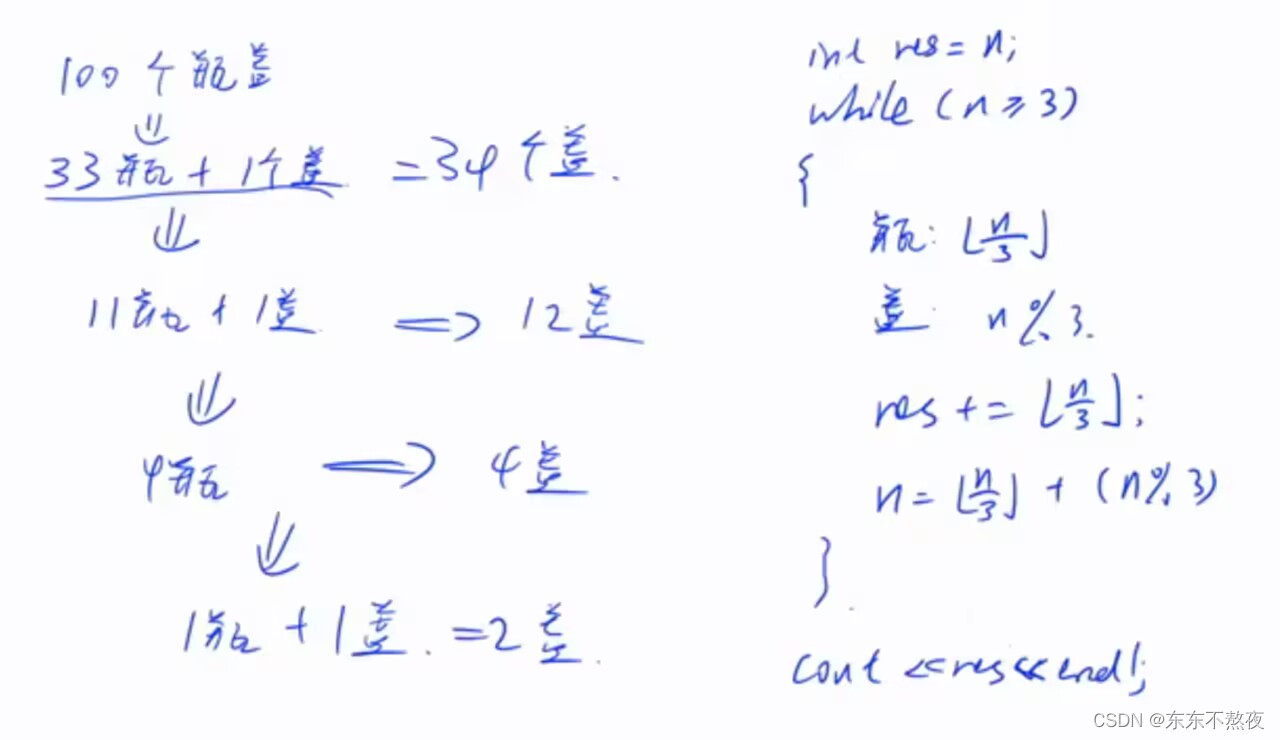 100个瓶盖
⇓
33瓶 + 1个盖 = 34个盖.
⇓
11瓶 + 1盖 ⇒ 12盖
⇓
4瓶 ⇒ 4盖
⇓
1瓶 + 1盖. = 2盖.
int res = n;
while (n ≥ 3)
{
瓶: ⌊n/3⌋
盖: n % 3.
res += ⌊n/3⌋;
n = ⌊n/3⌋ + (n % 3)
}.
cout << res << endl;
CSDN @东东不熬夜